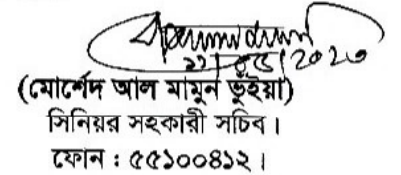 (মোর্শেদ আল মামুন ভুঁইয়া)
সিনিয়র সহকারী সচিব।
ফোন : ৫৫১০০৪১২।